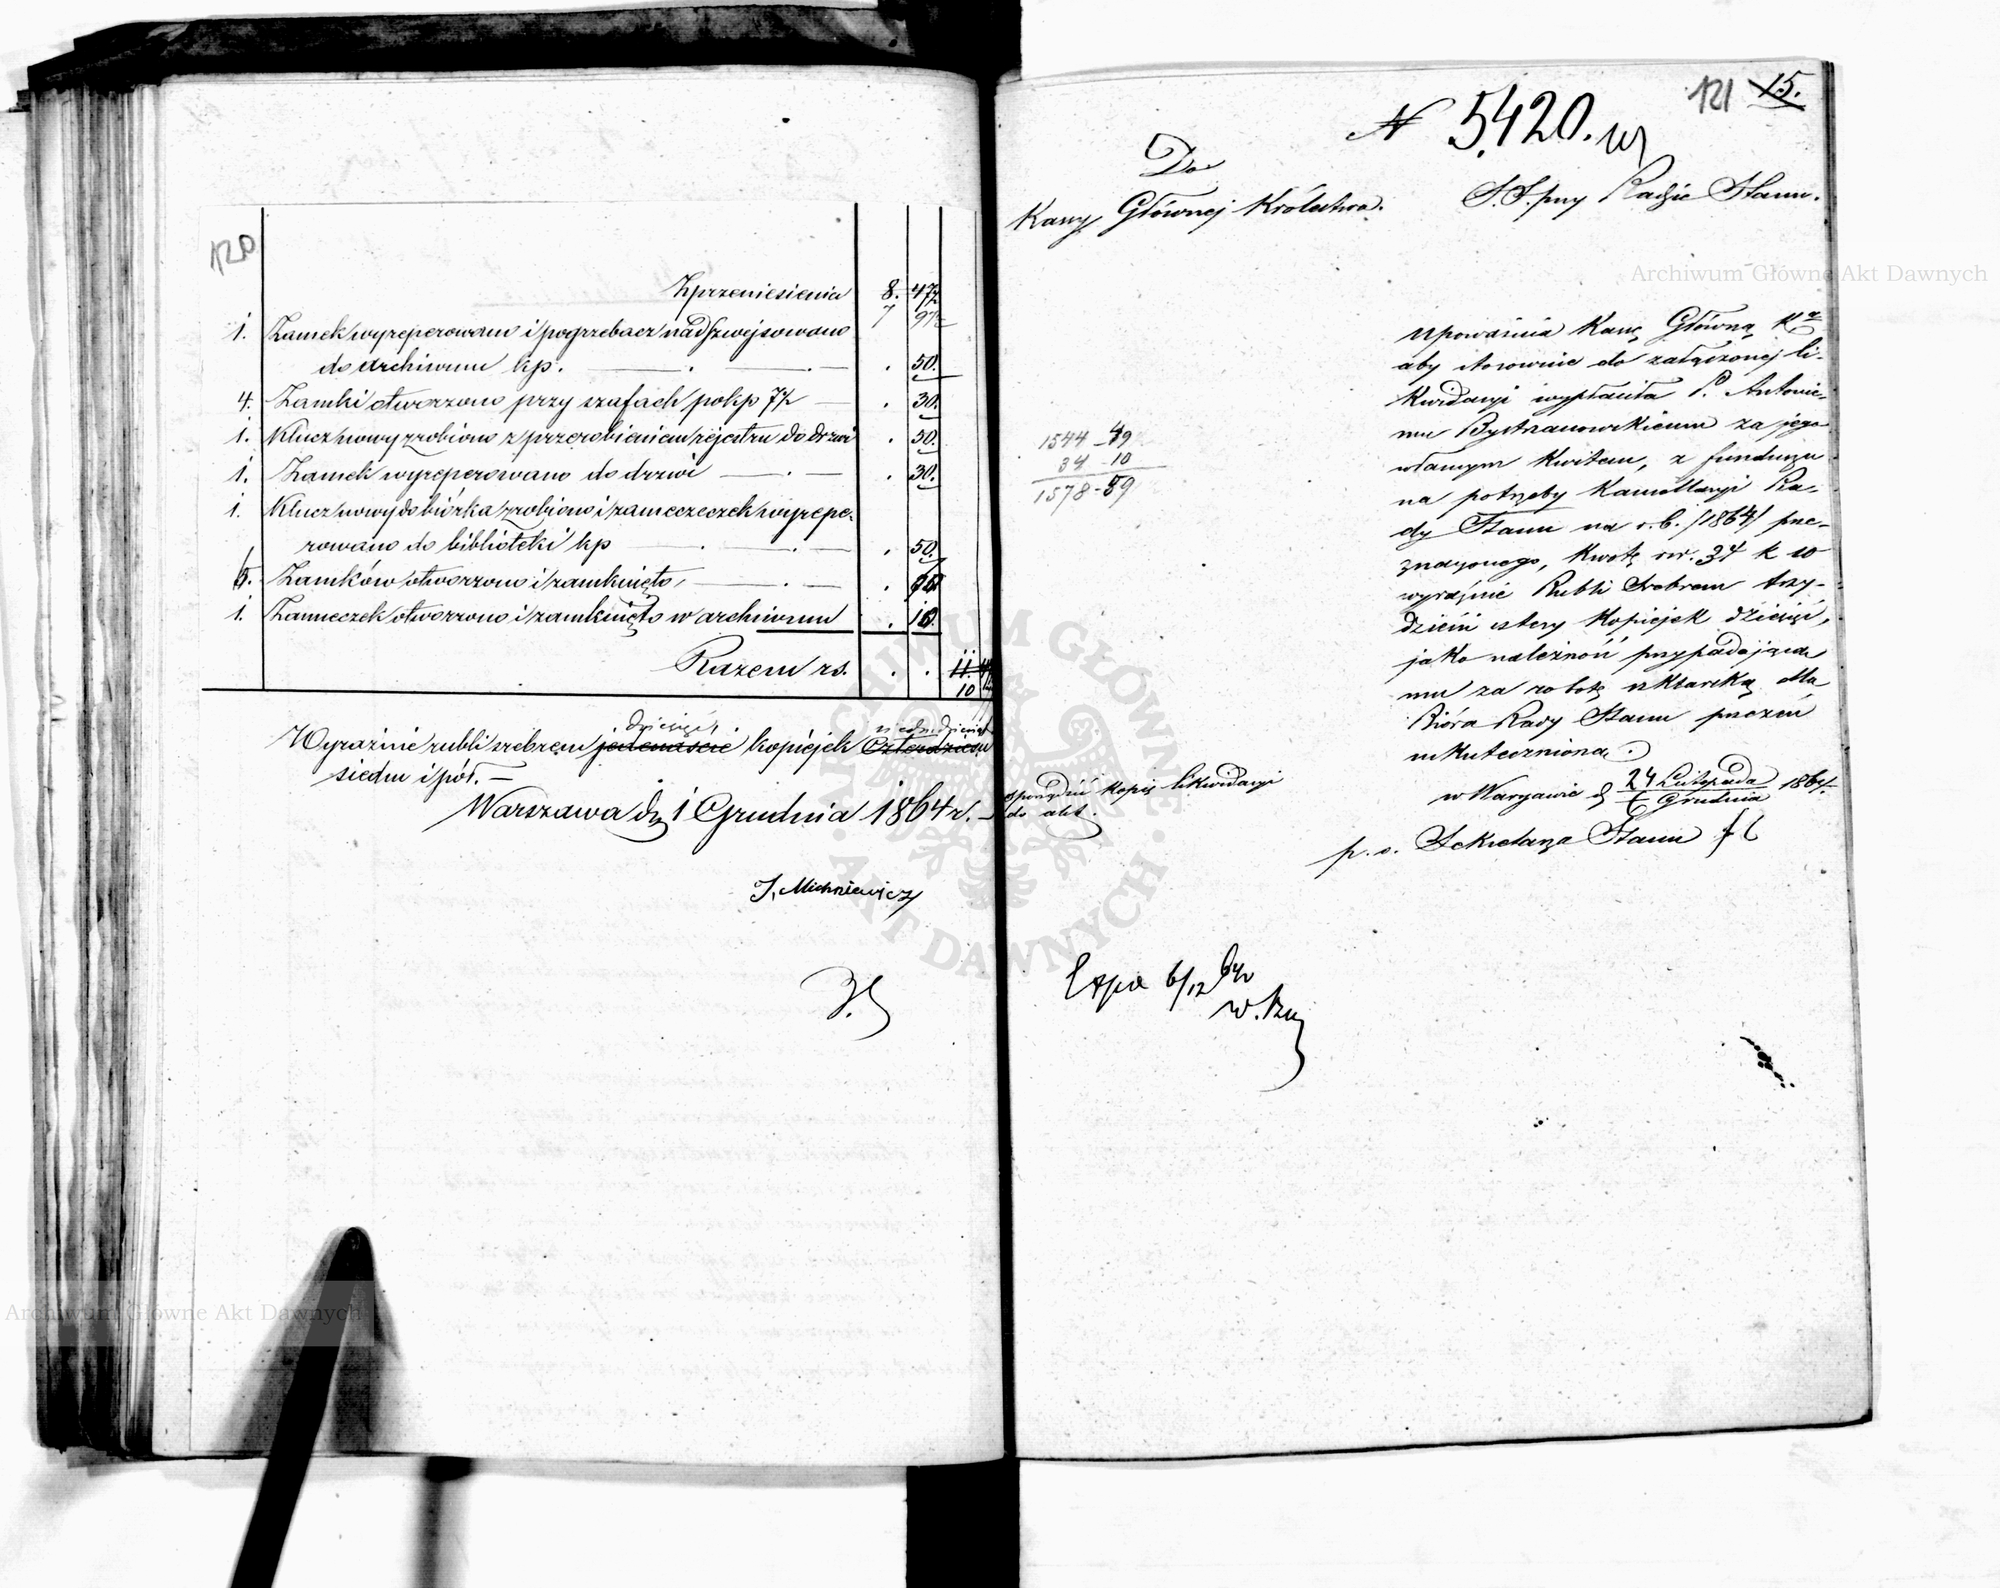 120
Z przeniesienia 8. 47½
7 97½
1. Zamek wyreperowano i pogrzebacz nadszwejsowano
do archiwum kp. — . — . 50.
4. Zamki otworzono przy szafach po kp 7½ — . 30.
1. Klucz nowy zrobiono z przerobieniem rejestru do drzwi . 50.
1. Zamek wyreperowano do drzwi — . — . 30.
1. Klucz nowy do biórka zrobiono i zameczek wyrepe-
rowano do biblioteki kp — . — . 50.
Zamków otworzono i zamknięto, — . —
1. Zameczek otworzono i zamknięto w archiwum . 10.
Razem rs. . . 11.
10
dziesięć siedmdziesiąt
Wyraźnie rubli srebrem jedenaście kopiejek czterdzieści
siedm i pół. —
Warszawa d. 1 Grudnia 1864 r. —
J. Michniewicz
121 15.
N 5,420.
Do
Kassy Głównej Królestwa.
S.S. przy Radzie Stanu.
Upoważnia Kassę Główną Kr.
aby stosownie do załączonej li-
kwidacyi wypłaciła P. Antonie-
mu Bystrzanowskiemu za jego
własnym kwitem, z funduszu
na potrzeby Kancellaryi Ra-
dy Stanu na r. b. /1864/ prze-
znaczonego, kwotę rsr. 34 k 10
wyraźnie Rubli Srebrem trzy-
dzieści cztery kopiejek dziesięć,
jako należność przypadającą
mu za robotę szklarską dla
Bióra Rady Stanu przezeń
uskutecznioną.
w Warszawie d. 24 Listopada 1864 r.
6 Grudnia
p. o. Sekretarza Stanu
1544 - 49
34 - 10
1578 - 59
sporządzić kopię likwidacyi
do akt.
Expe 6/12 64r
Archiwum Główne Akt Dawnych
Archiwum Główne Akt Dawnych
ARCHIWUM GŁÓWNE · AKT DAWNYCH ·